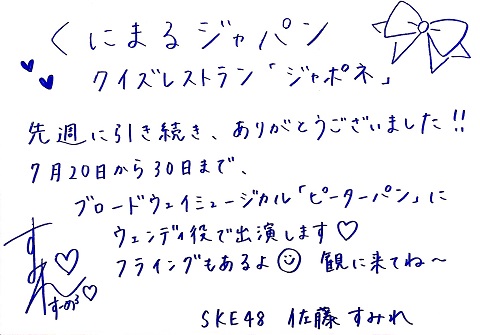 くにまるジャパン
クイズレストラン「ジャポネ」
先週に引き続き、ありがとうございました!!
7月20日から30日まで、
ブロードウェイミュージカル「ピーターパン」に
ウェンディ役で出演します♡
フライングもあるよ☺ 観に来てね〜
すみれ♡
すーめろ♡
SKE48 佐藤 すみれ